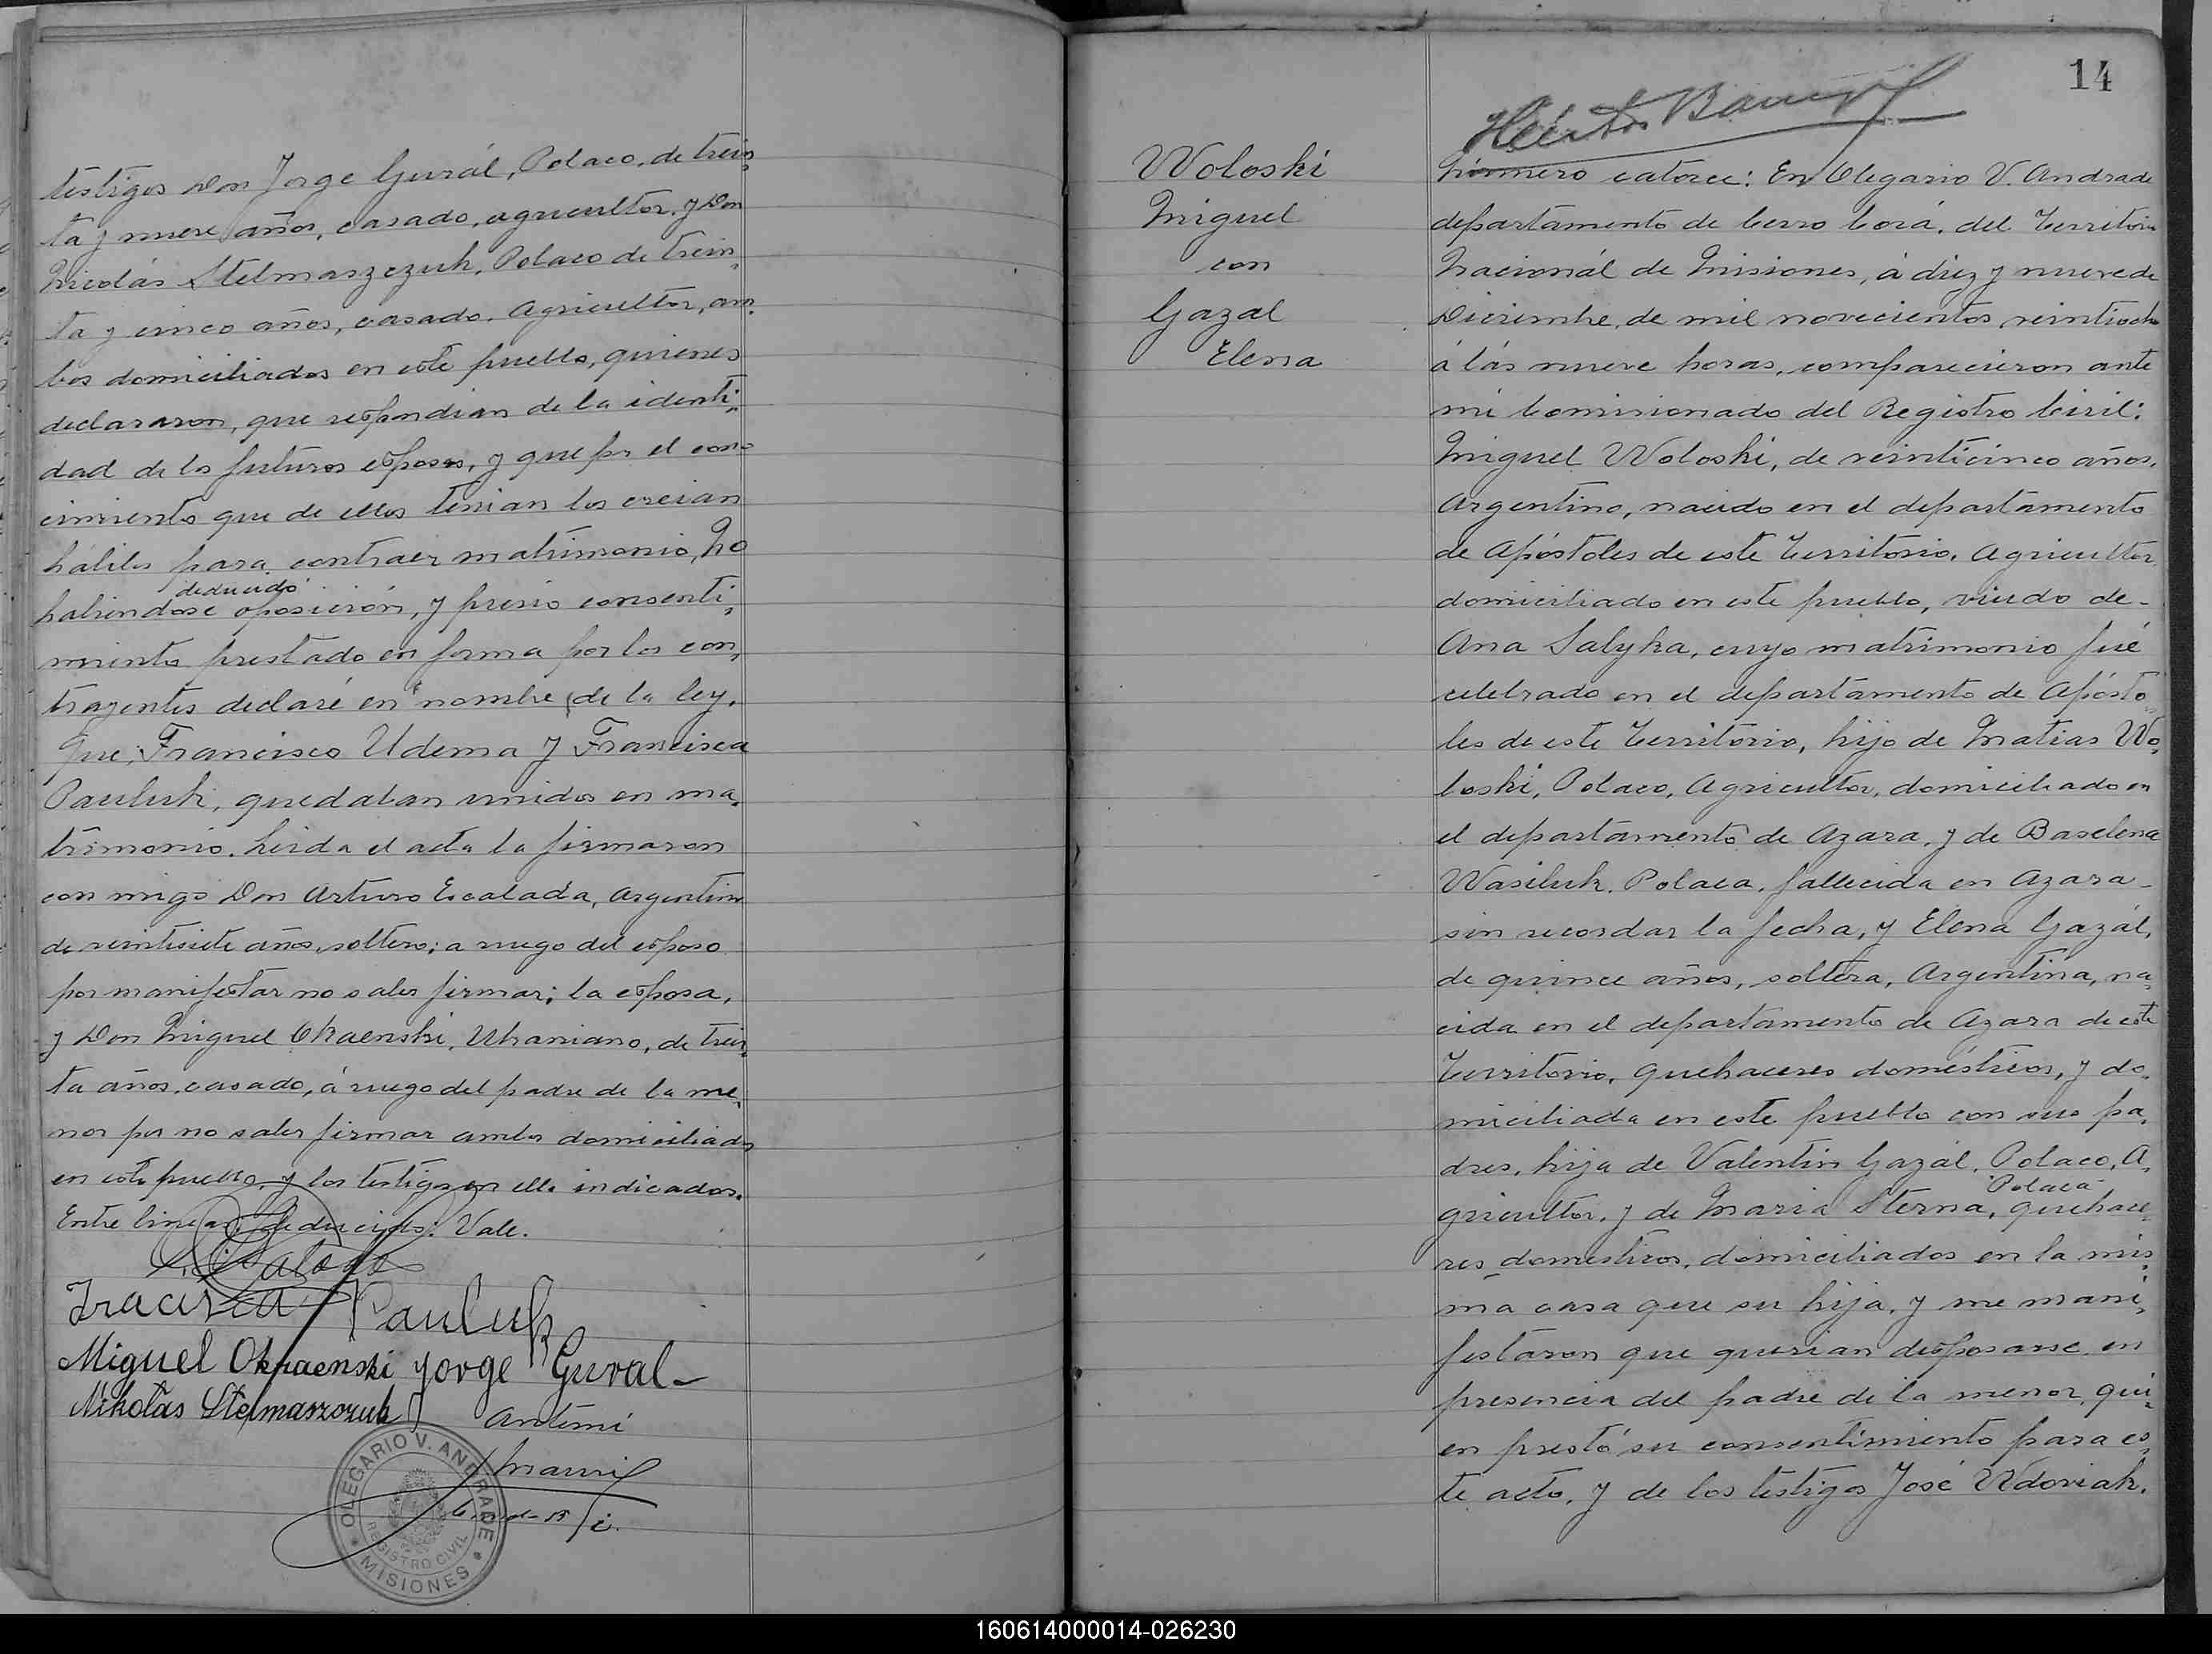 testigos Don Jorge Gurál, Polaco, de trein,
ta y nueve años, casado, agricultor, y Don
Nicolás Stelmaszczuk, Polaco de trein,
ta y cinco años, casado, Agricultor, am,
bos domiciliados en este pueblo, quienes
declararon, que respondian de la identi,
dad de los futuros esposos, y que por el cono
cimiento que de ellos tenian los creian
hábiles para contraer matrimonio, No
deducido
habiendose oposición, y previo consenti,
miento prestado en forma por los con,
trayentes declaré en nombre de la ley,
que; Francisco Udema y Francisca
Pauluk, quedaban unidos en ma,
trimonio. Leida el acta la firmaron
con migo Don Arturo Escalada, Argentino
de veintisiete años, soltero; a ruego del esposo
por manifestar no saber firmar; la esposa,
y Don Miguel Okraenski, Ukraniano, de trein,
ta años, casado, á ruego del padre de la me,
nor por no saber firmar ambos domiciliados
en este pueblo, y los testigos en ella indicados.
Entre lineas, deducido: Vale.
Pauluk
Miguel Okraenski Jorge Gural
Nikolás Stelmaszczuk
Antemi
OLEGARIO V. ANDRADE
REGISTRO CIVIL
MISIONES
14
Woloski
Miguel
con
Gazal
Elena
Número catorce: En Olegario V. Andrade
departamento de Cerro Corá, del Territorio
Nacionál de Misiones, á diez y nueve de
Diciembre, de mil novecientos veintiocho
á lás nueve horas, comparecieron ante
mi Comisionado del Registro Civil:
Miguel Woloski, de veinticinco años,
Argentino, nacido en el departamento
de Apóstoles de este Territorio, Agricultor,
domiciliado en este pueblo, viudo de-
Ana Salyka, cuyo matrimonio fué
celebrado en el departamento de Apósto
les de este Territorio, hijo de Matias Wo,
loski, Polaco, Agricultor, domiciliado en
el departamento de Azara, y de Baselena
Wasiluk, Polaca, fallecida en Azara-
sin recordar la fecha, y Elena Gazál,
de quince años, soltera, Argentina, na,
cida en el departamento de Azara de este
Territorio, quehaceres domésticos, y do,
miciliada en este pueblo con sus pa,
dres, hija de Valentin Gazál, Polaco, A,
Polaca
gricultor, y de Maria Sterna, quehace,
res domésticos, domiciliados en la mis,
ma casa que su hija, y me mani,
festaron que querian desposarse, en
presencia del padre de la menor, qui,
en prestó su consentimiento para es,
te acto, y de los testigos José Wdoviak,
160614000014-026230